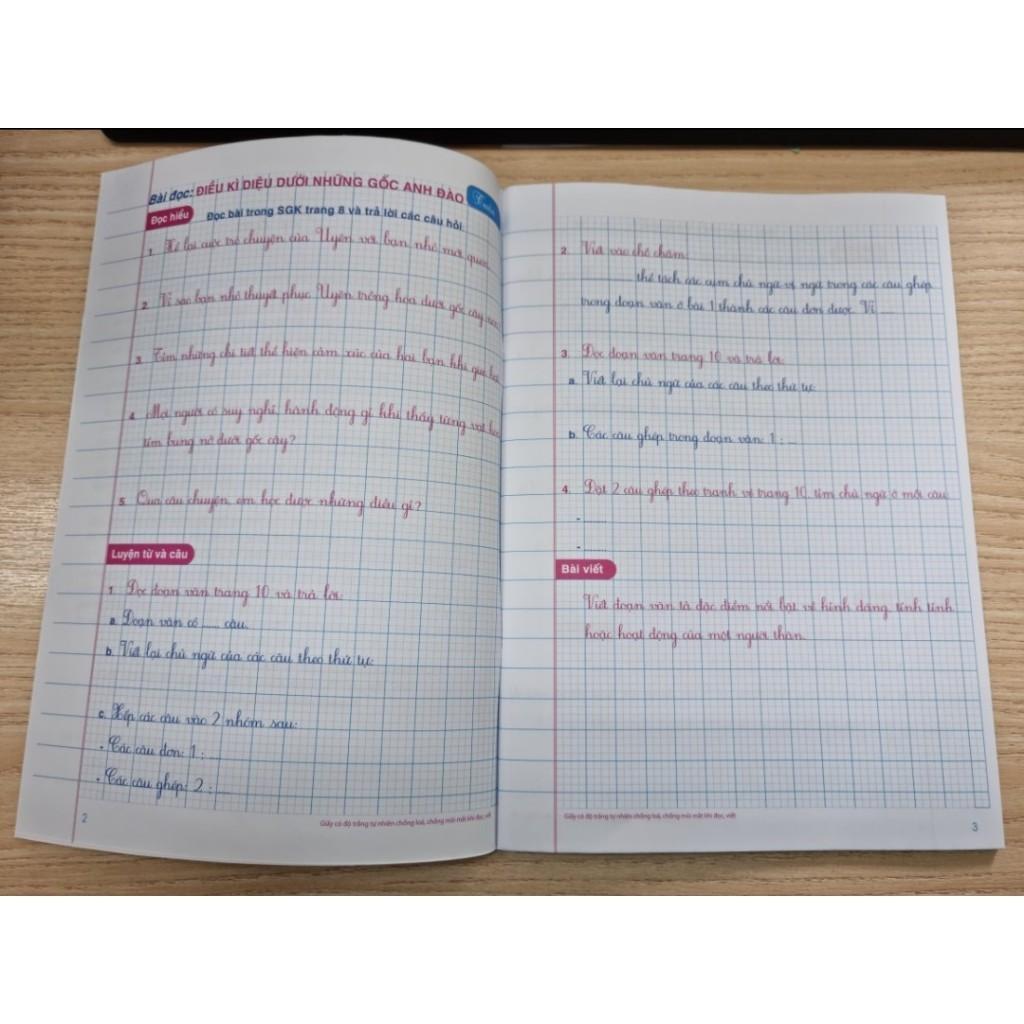 Bài đọc: ĐIỀU KÌ DIỆU DƯỚI NHỮNG GỐC ANH ĐÀO
Đọc hiểu
Đọc bài trong SGK trang 8 và trả lời các câu hỏi.
1. Kể lại cuộc trò chuyện của Uyên với bạn nhỏ mới quen.
2. Vì sao bạn nhỏ thuyết phục Uyên trồng hoa dưới gốc cây
3. Tìm những chi tiết thể hiện cảm xúc của hai bạn khi
4. Mọi người có suy nghĩ, hành động gì khi thấy từng vạt hoa
tím bừng nở dưới gốc cây?
5. Qua câu chuyện, em học được những điều gì?
Luyện từ và câu
1. Đọc đoạn văn trang 10 và trả lời:
a. Đoạn văn có ...... câu.
b. Viết lại chủ ngữ của các câu theo thứ tự:
c. Xếp các câu vào 2 nhóm sau:
- Các câu đơn: 1 : ....
- Các câu ghép: 2 : ....
2
Giấy có độ trắng tự nhiên chống loá, chống mỏi mắt khi đọc, viết
2. Viết vào chỗ chấm:
thể tách các cụm chủ ngữ vị ngữ trong các câu ghép
trong đoạn văn ở bài 1 thành các câu đơn được. Vì ....
3. Đọc đoạn văn trang 10 và trả lời:
a. Viết lại chủ ngữ của các câu theo thứ tự:
b. Các câu ghép trong đoạn văn: 1 : ....
4. Đặt 2 câu ghép theo tranh vẽ trang 10, tìm chủ ngữ ở mỗi câu.
- ........
-
Bài viết
Viết đoạn văn tả đặc điểm nổi bật về hình dáng, tính tình
hoặc hoạt động của một người thân.
Giấy có độ trắng tự nhiên chống loá, chống mỏi mắt khi đọc, viết
3